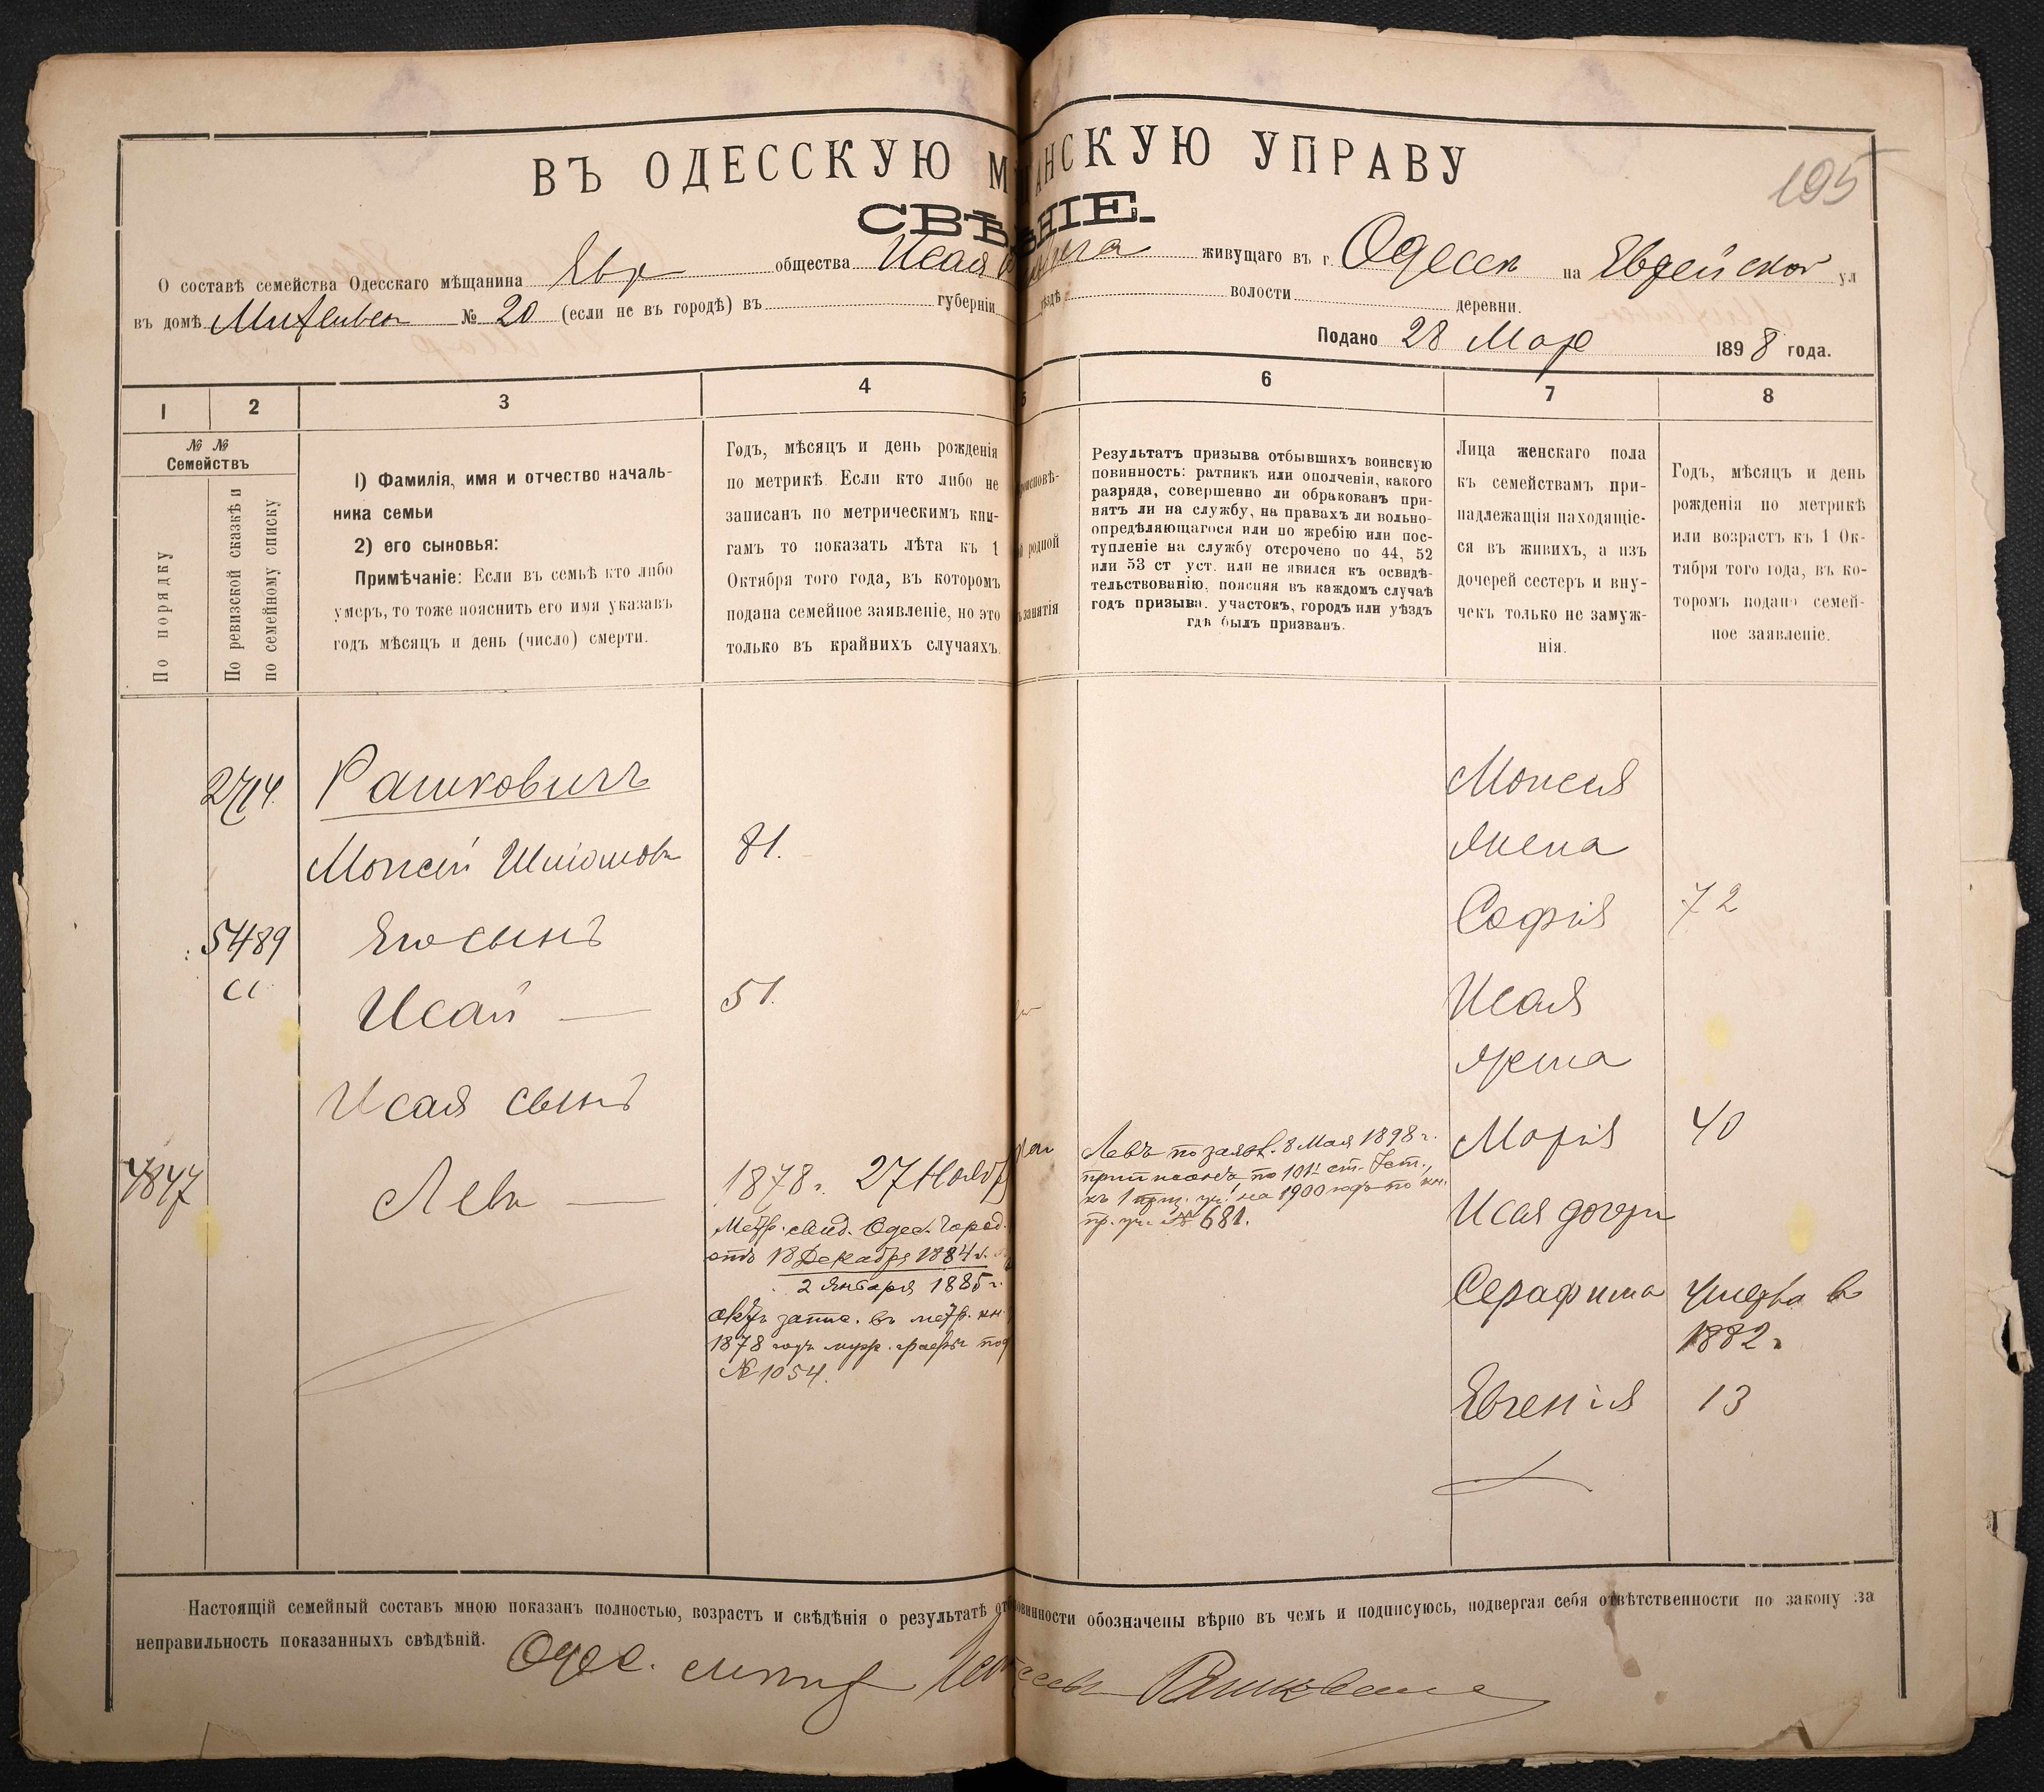 195
ВЪ ОДЕССКУЮ М АНСКУЮ УПРАВУ
СВѢ НІЕ.
О составѣ семейства Одесскаго мѣщанина Евр общества Исая живущаго въ г. Одесск на Еврейской ул
въ домѣ № 20 (если не въ городѣ) въ губерніи уѣздѣ волости деревни.
Подано 28 Мар 1898 года.
1 2 3 4 5 6 7 8
№ №
Семействъ
По порядку
По ревизской сказкѣ и
по семейному списку
1) Фамилія, имя и отчество началь-
ника семьи
2) его сыновья:
Примѣчаніе: Если въ семьѣ кто либо
умеръ, то тоже пояснить его имя указавъ
годъ мѣсяцъ и день (число) смерти.
Годъ, мѣсяцъ и день рожденія
по метрикѣ Если кто либо не
записанъ по метрическимъ кни-
гамъ то показать лѣта къ 1
Октября того года, въ которомъ
подана семейное заявленіе, но это
только въ крайнихъ случаяхъ.
роисповѣ-
родной
занятія
Результатъ призыва отбывшихъ воинскую
повинность: ратникъ или ополченія, какого
разряда, совершенно ли обракованъ при-
нятъ ли на службу, на правахъ ли вольно-
опредѣляющагося или по жребію или пос-
тупленіе на службу отсрочено по 44, 52
или 53 ст уст. или не явился къ освидѣ-
тельствованію, поясняя въ каждомъ случаѣ
годъ призыва. участокъ, городъ или уѣздъ
гдѣ былъ призванъ.
Лица женскаго пола
къ семействамъ при-
надлежащія находящіе-
ся въ живихъ, а изъ
дочерей сестеръ и вну-
чекъ только не замуж-
нія.
Годъ, мѣсяцъ и день
рожденія по метрикѣ
или возрастъ къ 1 Ок-
тября того года, въ ко-
торомъ подано семей-
ное заявленіе.
2714
Рашковичъ
Моисей Шліомовъ 81.
5489
Его сынъ
Исай 51.
Исая сынъ
4847
Левъ
1878 г. 27 Нояб
Метр. свид. Одес. Город.
отъ 18 Декабря 1884 г.
2 Января 1885 г.
актъ запис. въ метр. кн
1878 годъ под
№ 1054.
Левъ по заявл. 8 Мая 1898 г.
приписанъ по 101 ст. Уст.,
къ 1 приз. уч. на 1900 годъ по кн.
пр. уч. № 681.
Моисея
жена
Софія 72
Исая
жена
Марія 40
Исая дочери
Серафима умерла в
1882 г
Евгенія 13
Настоящій семейный составъ мною показанъ полностью, возрастъ и свѣдѣнія о результатѣ от овинности обозначены вѣрно въ чемъ и подписуюсь, подвергая себя отвѣтственности по закону за
неправильность показанныхъ свѣдѣній.
Одес.